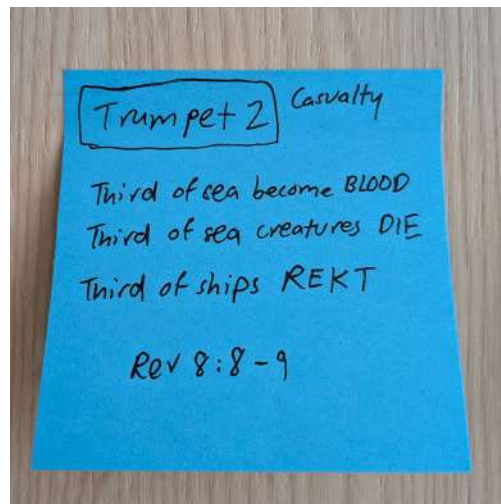 Trumpet 2 Casualty
Third of sea become BLOOD
Third of sea creatures DIE
Third of ships REKT
Rev 8:8-9